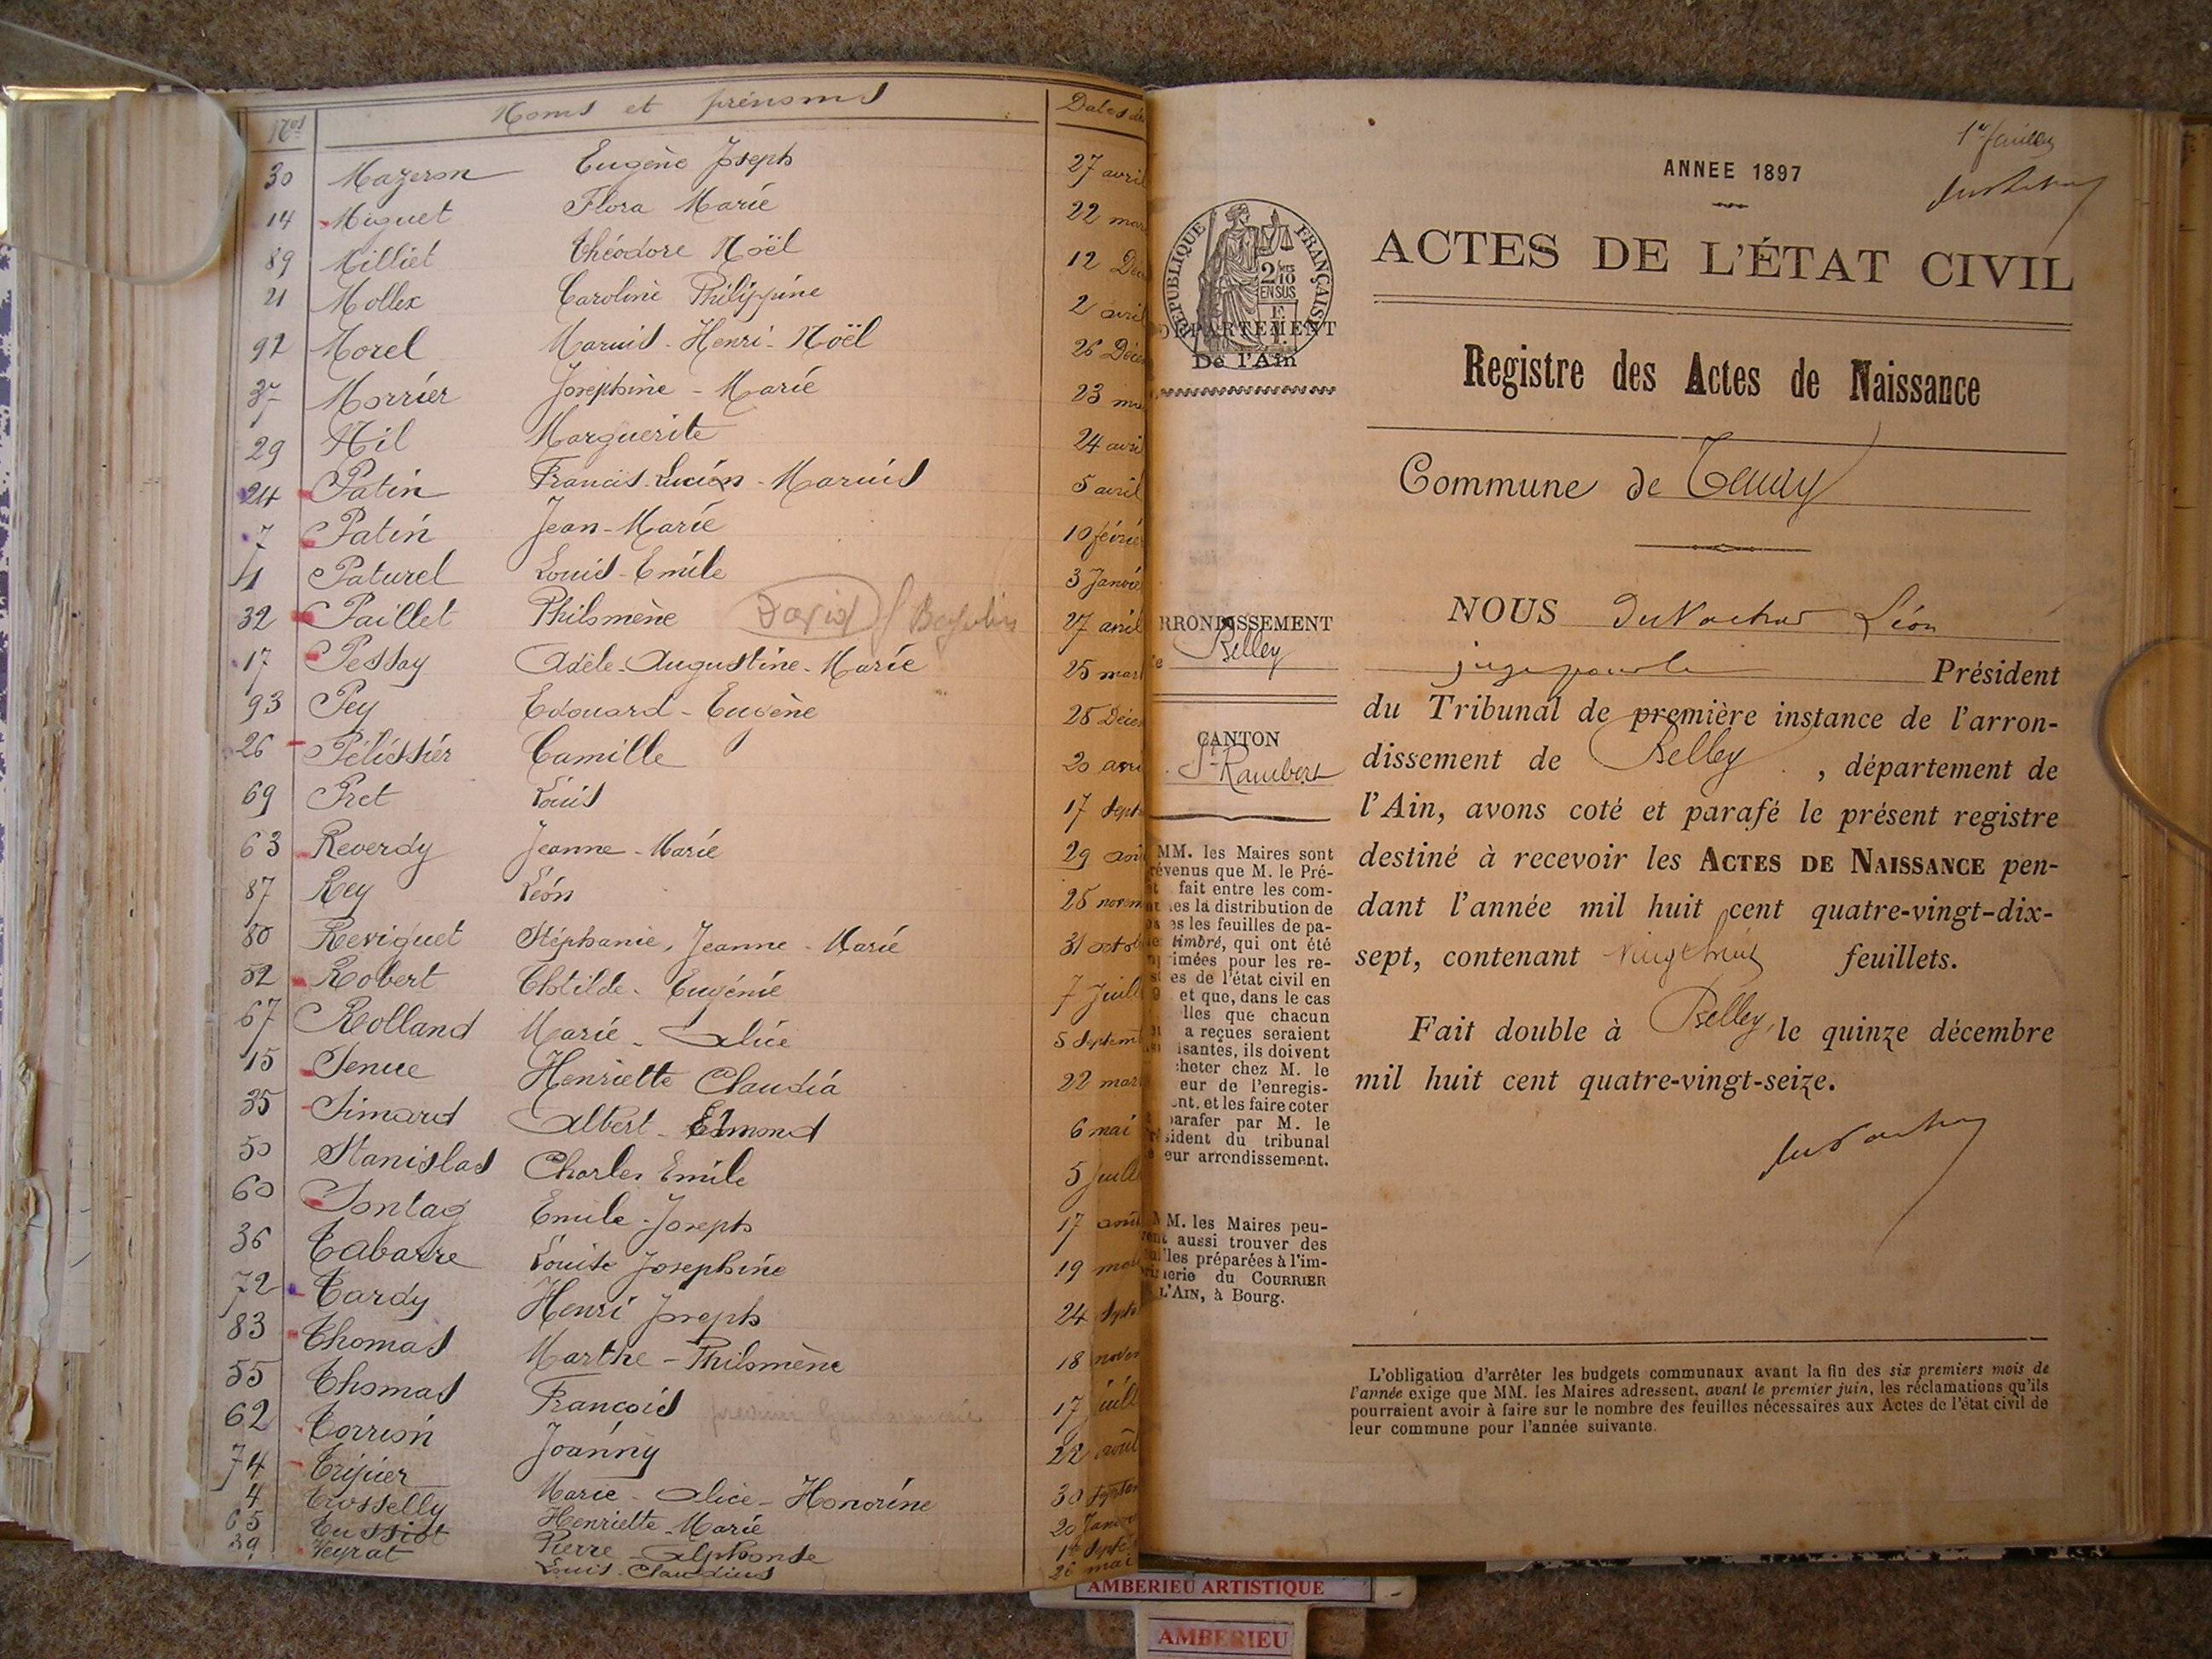 Nos Noms et prénoms Dates de
30 Mazeron Eugène Joseph 27 avril
14 Miguet Flora Marie 22 mar
89 Milliet Théodore Noël 12 Déc
21 Mollex Caroline Philippine 2 avril
92 Morel Marius-Henri-Noël 26 Déce
37 Morrier Josephine-Marie 23 ma
29 Nil Marguerite 24 avri
24 Patin Francis-Lucien-Marius 5 avril
7 Patin Jean-Marie 10 févrie
1 Paturel Louis-Emile 3 Janvie
32 Paillet Philomène David 27 avril
17 Pessay Adèle-Augustine-Marie 25 mar
93 Pey Edouard-Eugène 28 Déce
26 Pélissier Camille 20 avri
69 Pret Louis 17 Sept
63 Reverdy Jeanne-Marie 29 aoû
87 Rey Léon 25 novem
80 Reviguet Stéphanie, Jeanne-Marie 31 octob
52 Robert Clotilde-Eugénie 7 Juill
67 Rolland Marie-Alice 5 Septem
15 Senue Henriette Claudia 22 mar
35 Simard Albert-Edmond 6 mai
50 Stanislas Charles Emile 5 Juill
60 Sontag Emile-Joseph 17 août
36 Tabarre Louise Josephine 19 mai
72 Tardy Henri Joseph 24 Septe
83 Thomas Marthe-Philomène 18 novem
55 Thomas François 17 juill
62 Torrion Joanny 22 août
74 Tripier Marie-Alice-Honorine 30 Septem
4 Trosselly Henriette-Marie 20 Janv
65 Tussiot Pierre-Alphonse 1er Septe
39 Veyrat Louis-Claudius 26 mai
1er feuillet
ANNEE 1897
ACTES DE L'ÉTAT CIVIL
RÉPUBLIQUE FRANÇAISE
2 10
EN SUS
DÉPARTEMENT
De l'Ain
Registre des Actes de Naissance
Commune de Tenay
NOUS Léon
juge pour le Président
RRONDISSEMENT
Belley
du Tribunal de première instance de l'arron-
dissement de Belley, département de
CANTON
St Rambert
l'Ain, avons coté et parafé le présent registre
destiné à recevoir les ACTES DE NAISSANCE pen-
dant l'année mil huit cent quatre-vingt-dix-
sept, contenant vingt huit feuillets.
Fait double à Belley, le quinze décembre
mil huit cent quatre-vingt-seize.
MM. les Maires sont
révenus que M. le Pré-
fait entre les com-
es la distribution de
es les feuilles de pa-
timbré, qui ont été
imées pour les re-
es de l'état civil en
et que, dans le cas
lles que chacun
a reçues seraient
isantes, ils doivent
cheter chez M. le
eur de l'enregis-
nt, et les faire coter
parafer par M. le
sident du tribunal
eur arrondissement.
MM. les Maires peu-
vent aussi trouver des
uilles préparées à l'im-
merie du COURRIER
L'AIN, à Bourg.
L'obligation d'arrêter les budgets communaux avant la fin des six premiers mois de
l'année exige que MM. les Maires adressent, avant le premier juin, les réclamations qu'ils
pourraient avoir à faire sur le nombre des feuilles nécessaires aux Actes de l'état civil de
leur commune pour l'année suivante.
AMBERIEU ARTISTIQUE
AMBERIEU